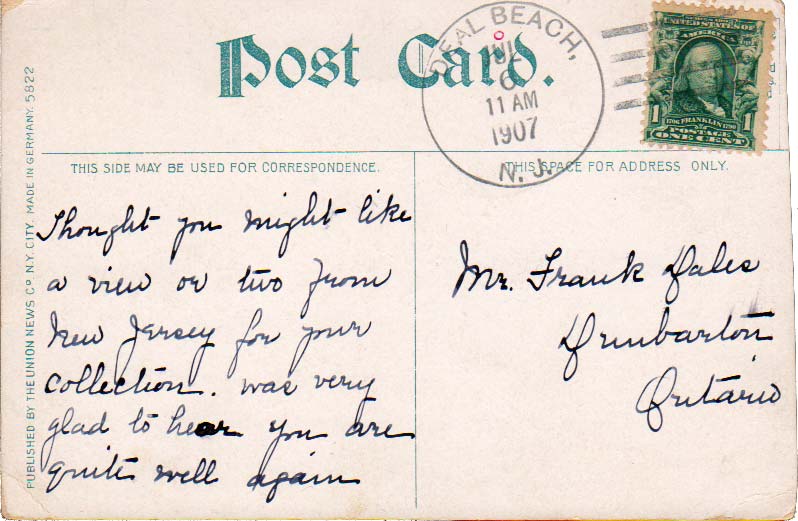 Post Card.
DEAL BEACH,
JUL
6
11 AM
1907
N. J.
SERIES 1902
UNITED STATES OF
AMERICA
1 1
1706 FRANKLIN 1790
POSTAGE
ONE CENT
THIS SIDE MAY BE USED FOR CORRESPONDENCE.
THIS SPACE FOR ADDRESS ONLY.
Thought you might like
a view or two from
New Jersey for your
collection. was very
glad to hear you are
quite well again
Mr. Frank Dales
Dunbarton
Ontario
PUBLISHED BY THE UNION NEWS CO. N.Y. CITY. MADE IN GERMANY. 5822